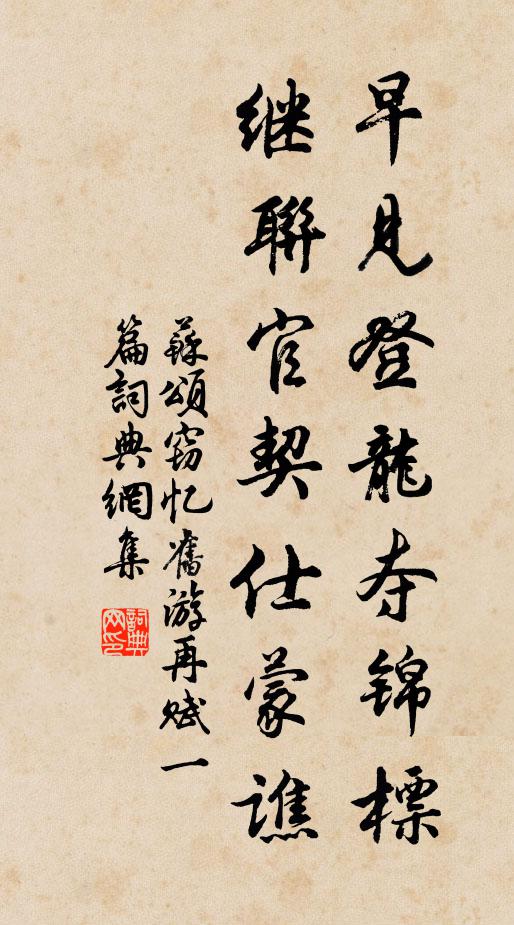 早见登龙夺锦標
继聯官契仕蒙譙
蘇頌窃忆舊游再赋一
篇詞典網集
詞典网印